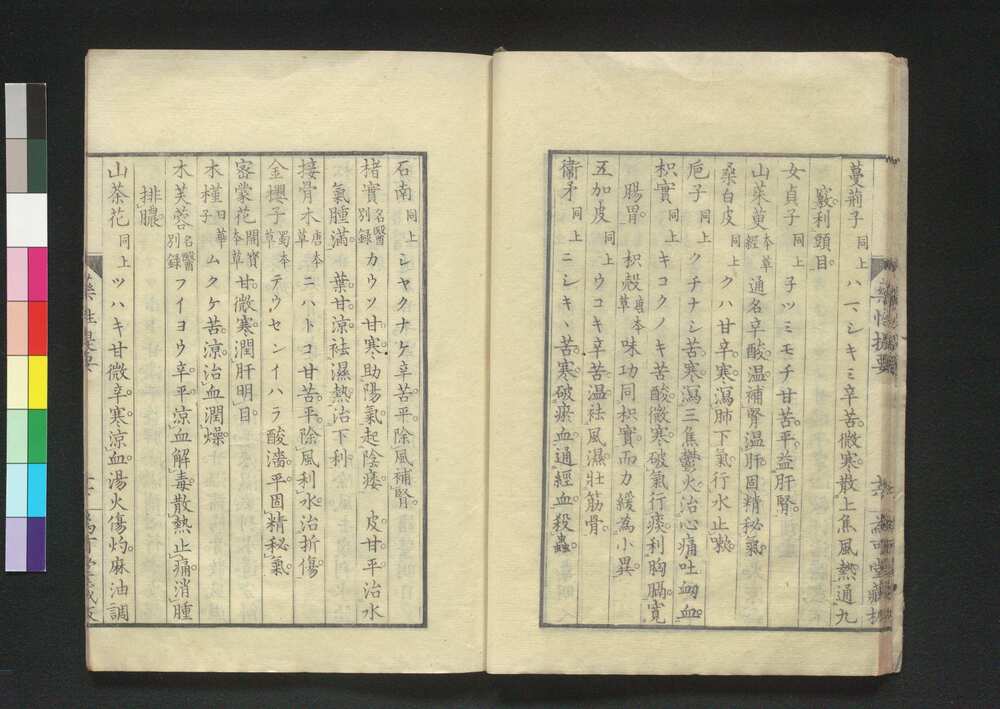 蔓荊子 同上 ハマシキミ辛苦微寒散上焦風熱通九
竅利頭目
女貞子 同上 子ツミモチ甘苦平益肝腎
山茱萸 本草經 通名辛酸温補腎温肝固精秘氣
桑白皮 同上 クハ甘辛寒瀉肺下氣行水止嗽
梔子 同上 クチナシ苦寒瀉三焦鬱火治心痛吐衂血
枳實 同上 キコクノキ苦酸微寒破氣行痰利胸膈寛
腸胃 枳殻 唐本草 味功同枳實而力緩為小異
五加皮 同上 ウコキ辛苦温祛風濕壯筋骨
衞矛 同上 ニシキヽ苦寒破瘀血通經血殺蟲
石南 同上 シヤクナケ辛苦平除風補腎
楮實 名醫別録 カウソ甘寒助陽氣起陰痿 皮甘平治水
氣腫滿 葉甘涼祛濕熱治下利
接骨木 唐本草 ニハトコ甘苦平除風利水治折傷
金櫻子 蜀本草 テウセンイハラ酸濇平固精秘氣
密蒙花 開寶本草 甘微寒潤肝明目
木槿 日華子 ムクケ苦涼治血潤燥
木芙蓉 名醫別録 フイヨウ辛平涼血解毒散熱止痛消腫
排膿
山茶花 同上 ツハキ甘微辛寒涼血湯火傷灼麻油調